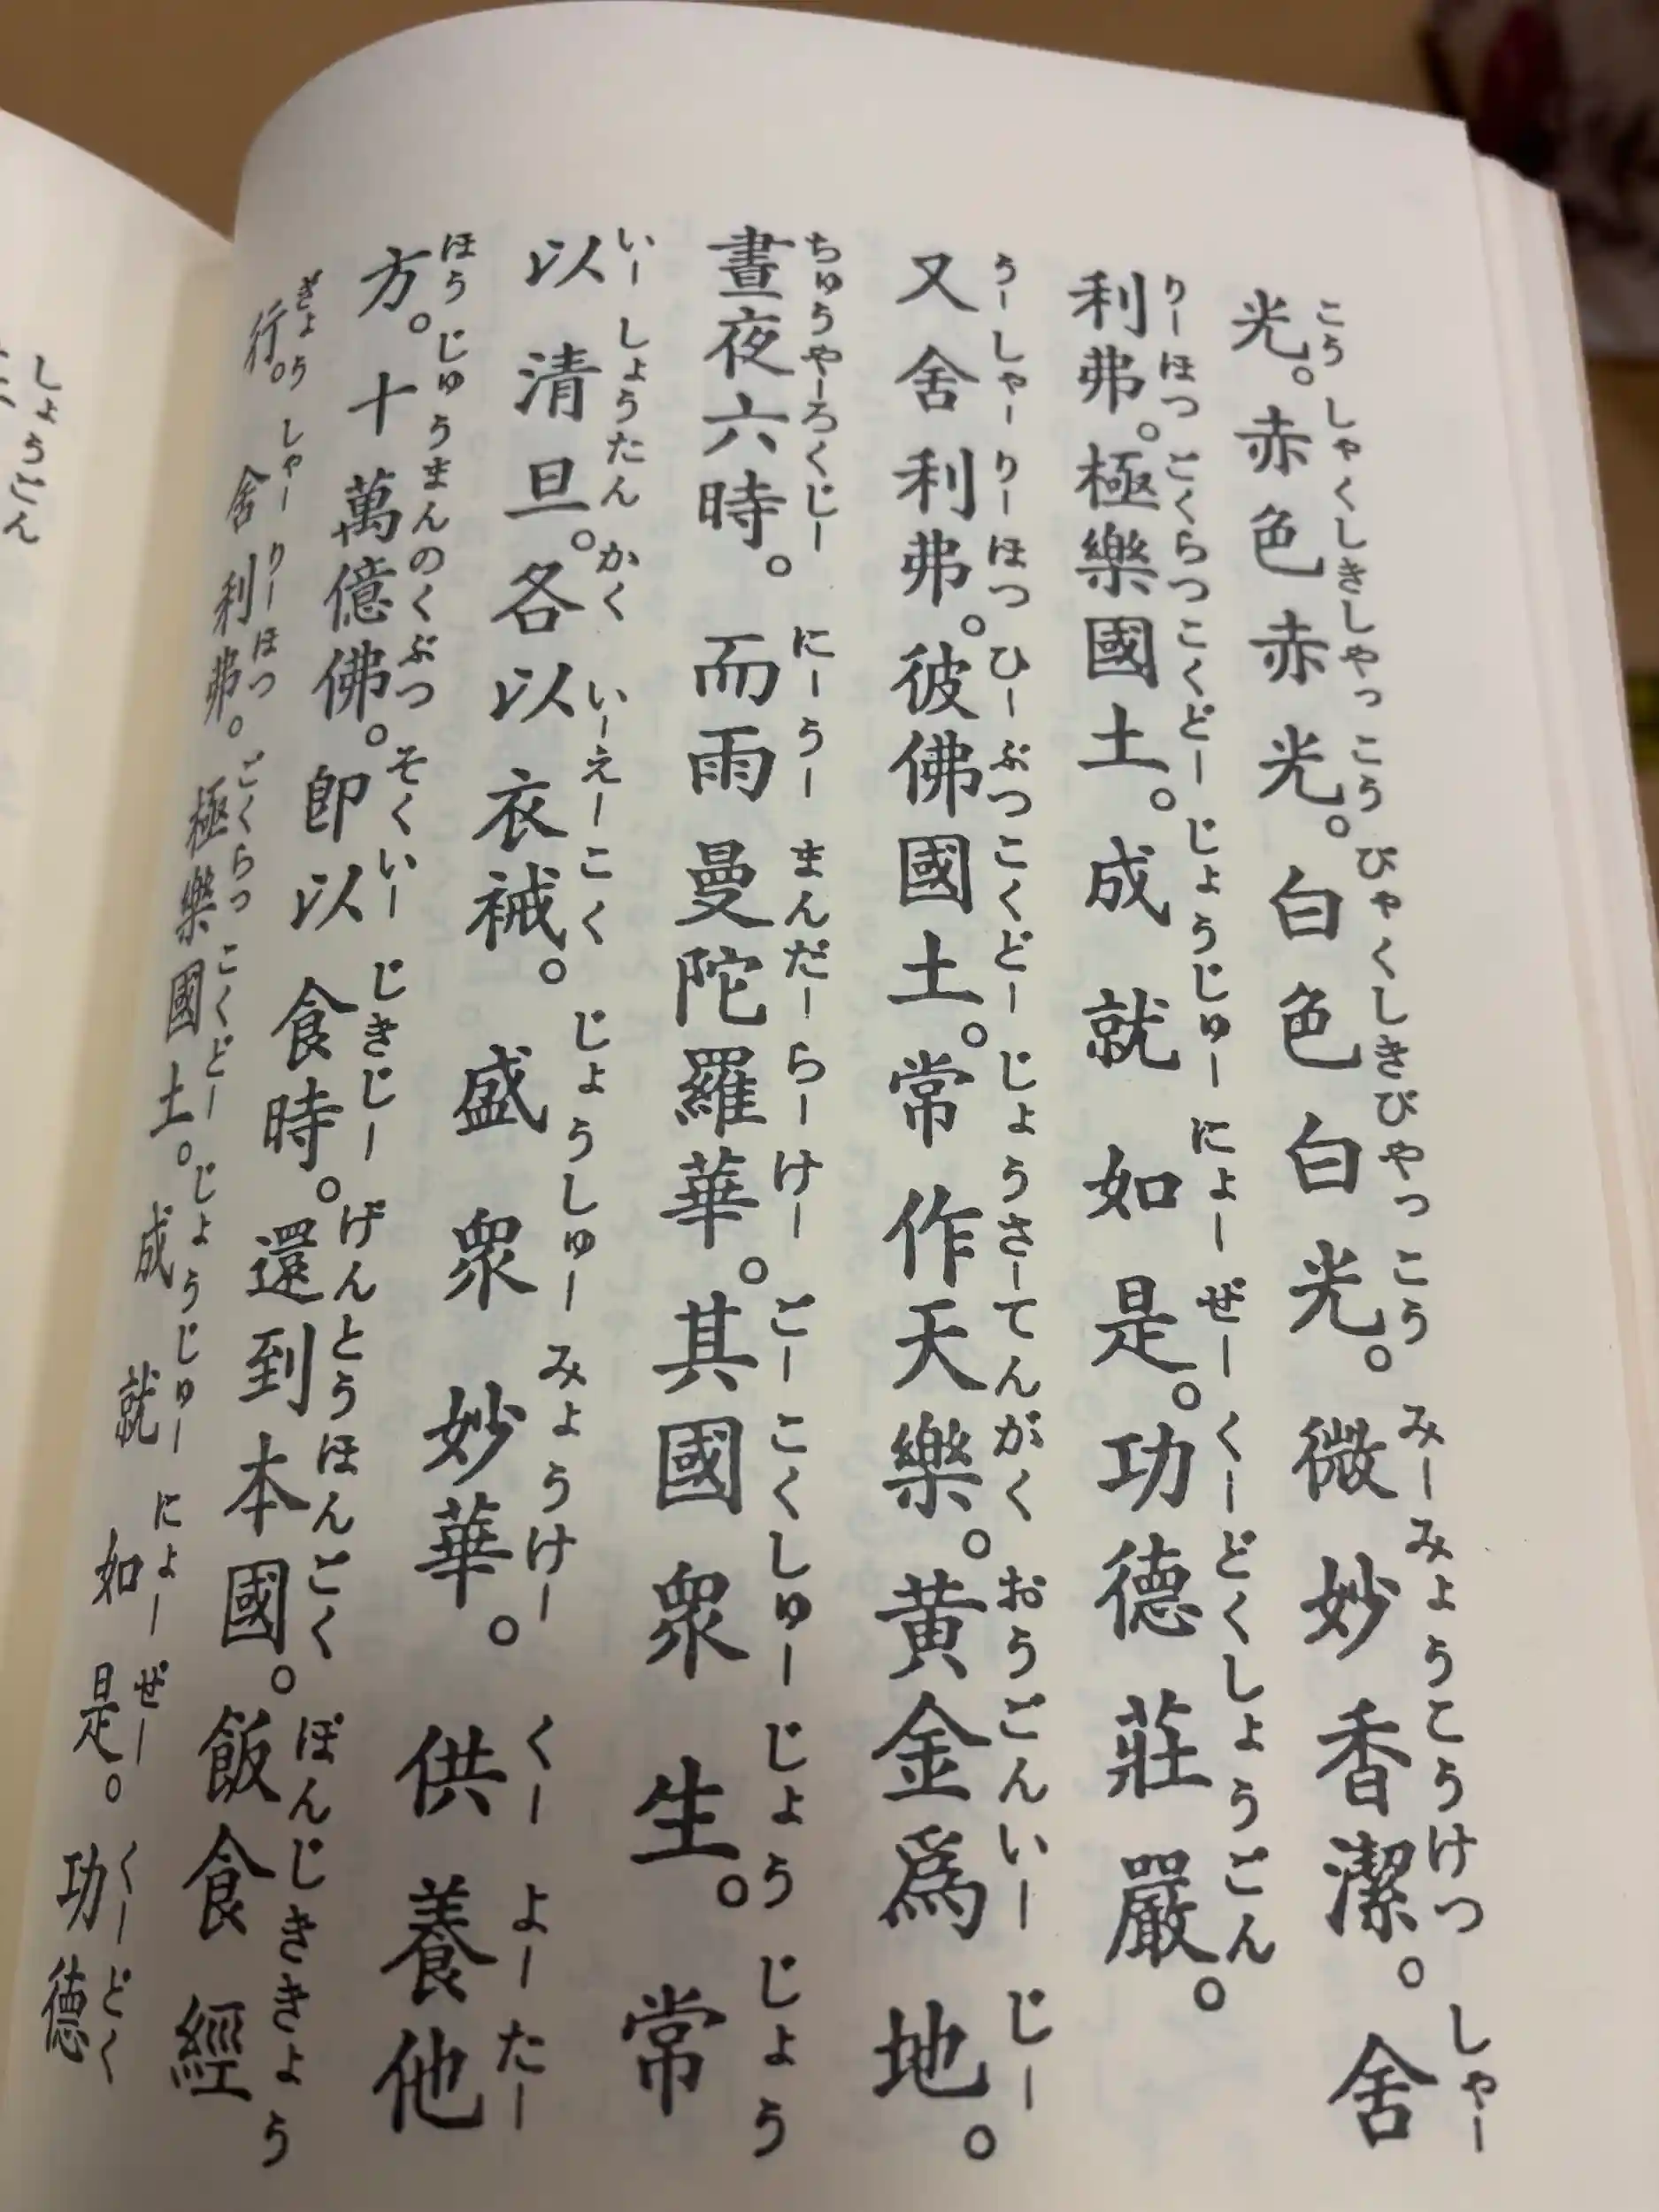 こうしゃくしきしやっこうびゃくしきびやっこうみーみょうこうけつしゃー
光。赤色赤光。白色白光。微妙香潔。舍
りーほつごくらつこくどーじょうじゅーにょーぜーくーどくしょうごん
利弗。極樂國土。成就如是。功德莊嚴。
うーしゃーりーほつひーぶつこくどーじょうさーてんがくおうごんいーじー
又舍利弗。彼佛國土。常作天樂。黄金爲地。
ちゅうやーろくじーにーうーまんだーらーけーごーこくしゅーじょうじょう
晝夜六時。而雨曼陀羅華。其國衆生。常
いーしょうたんかくいーえーこくじょうしゅーみょうけーくーよーたー
以清旦。各以衣裓。盛衆妙華。供養他
ほうじゅうまんのくぶつそくいーじきじーげんとうほんごくぼんじききょう
方。十萬億佛。卽以食時。還到本國。飯食經
ぎょうしゃーりーほつごくらっこくどーじょうじゅーにょーぜーくーどく
行。舍利弗。極樂國土。成就如是。功德
しょうごん